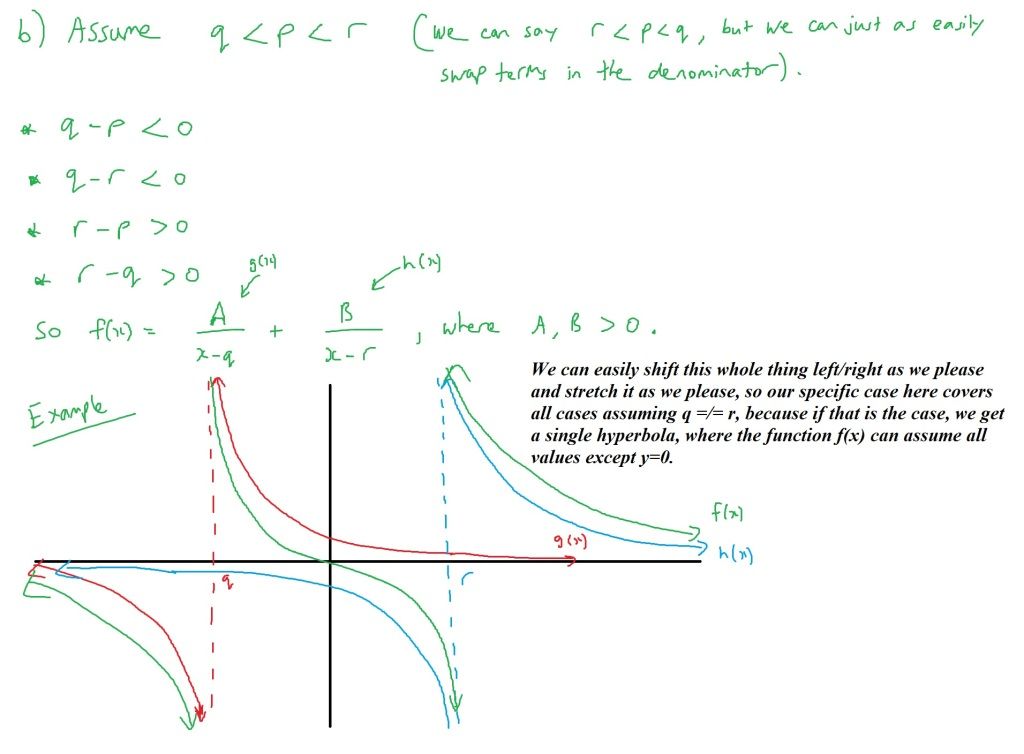 b) Assume q < p < r (we can say r < p < q, but we can just as easily
swap terms in the denominator).
* q - p < 0
* q - r < 0
* r - p > 0
* r - q > 0
g(x) h(x)
So f(x) = A/(x-q) + B/(x-r), where A, B > 0.
We can easily shift this whole thing left/right as we please
and stretch it as we please, so our specific case here covers
all cases assuming q =/= r, because if that is the case, we get
a single hyperbola, where the function f(x) can assume all
values except y=0.
Example
f(x)
g(x)
h(x)
q
r